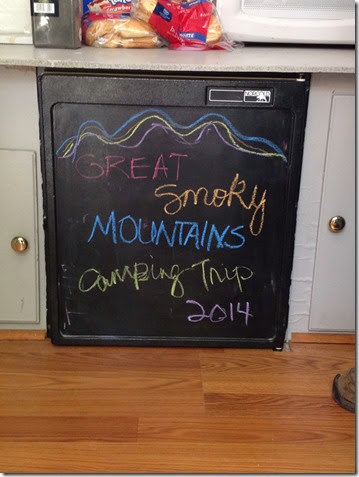 GREAT
Smoky
MOUNTAINS
Camping Trip
2014